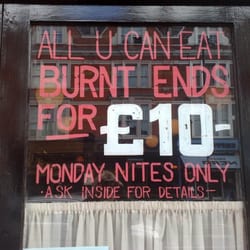 ALL U CAN EAT
BURNT ENDS
FOR £10-
MONDAY NITES ONLY
·ASK INSIDE FOR DETAILS-